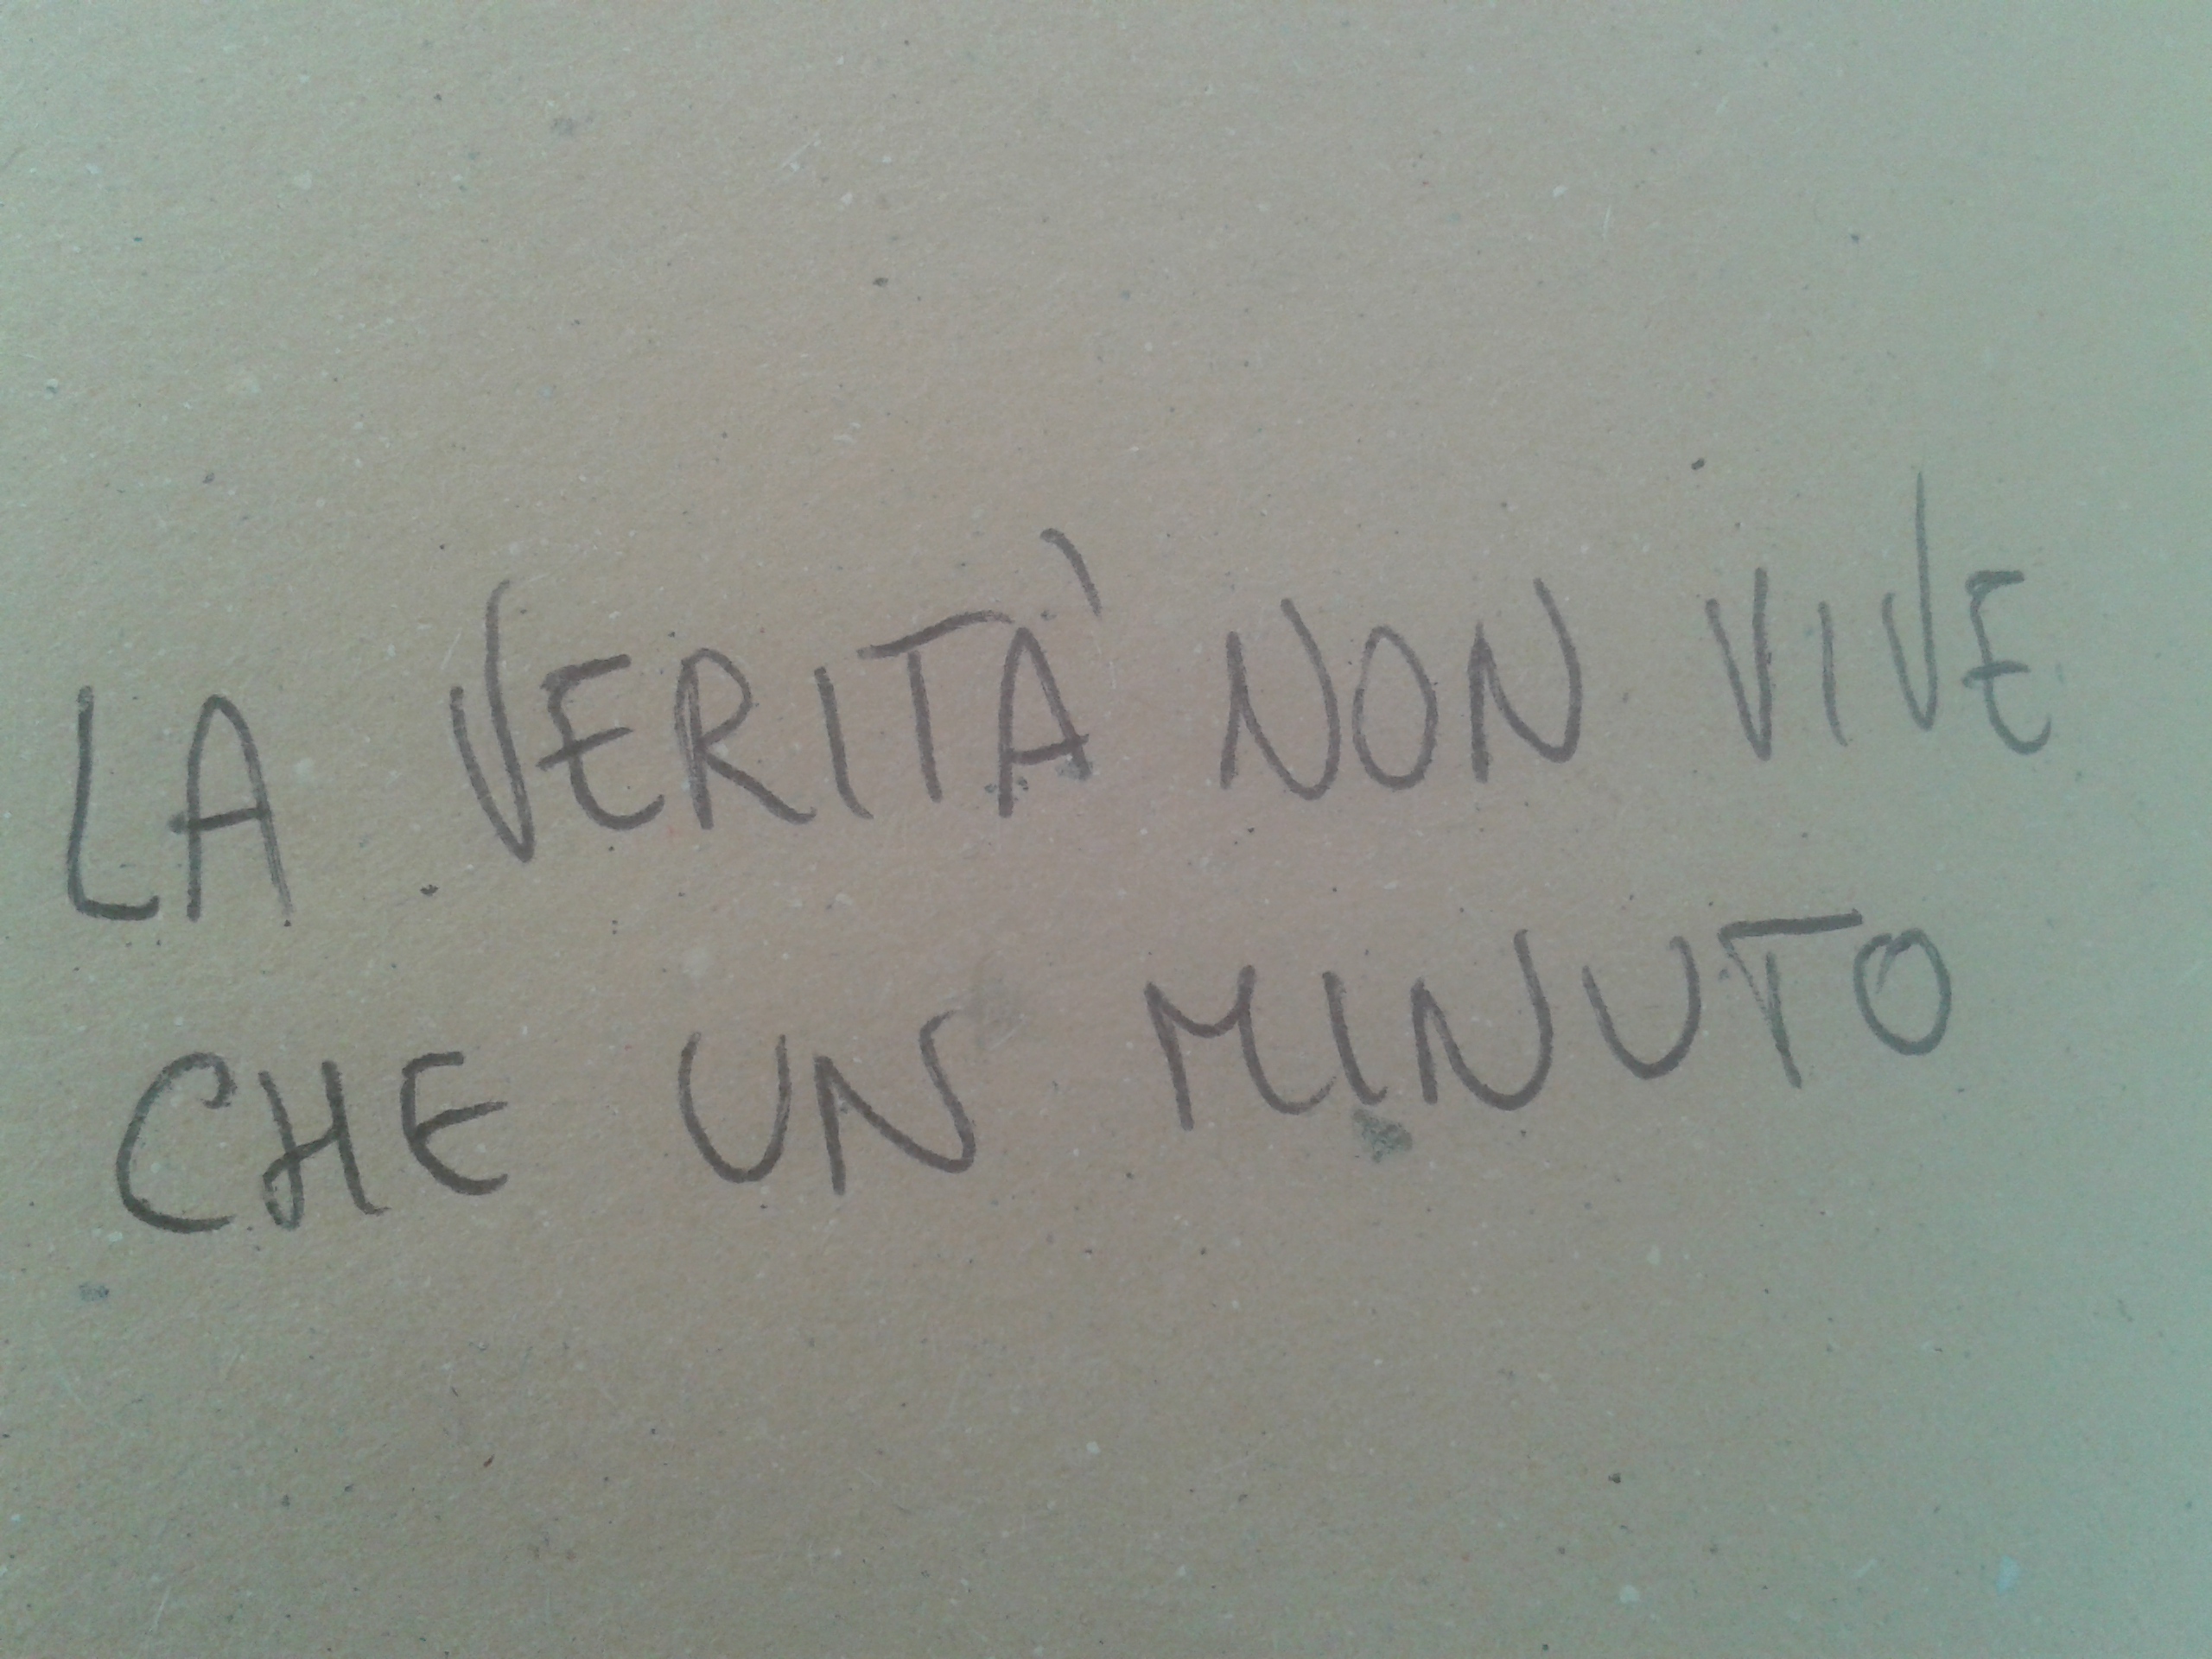 LA VERITÀ NON VIVE
CHE UN MINUTO